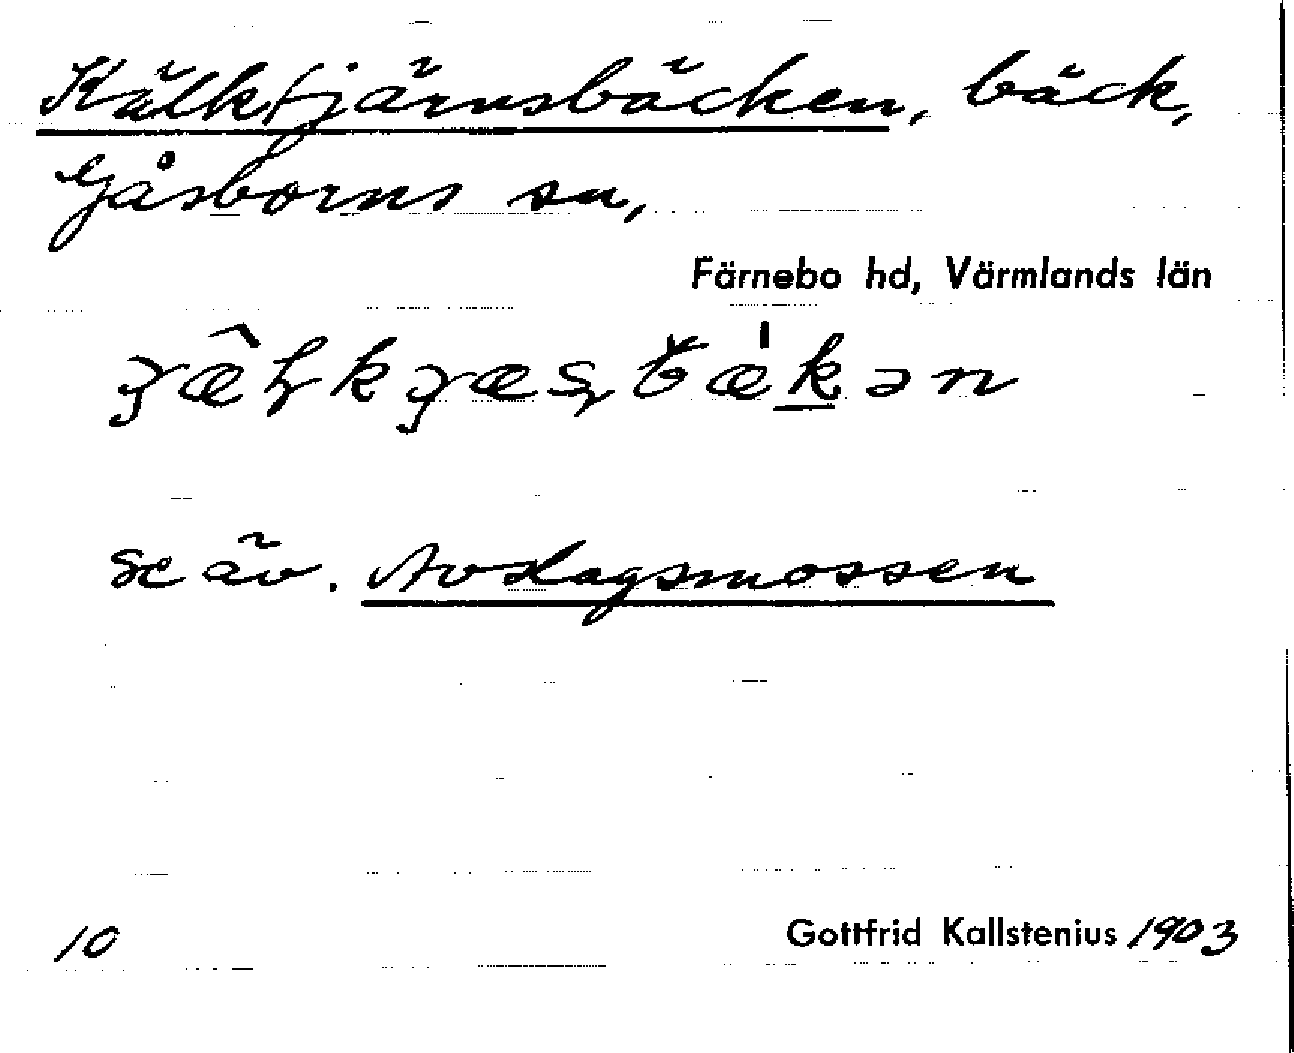 Kälktjärnsbäcken, bäck,
Gåsborns sn,
Färnebo hd, Värmlands län
se äv. Avdagsmossen
10
Gottfrid Kallstenius 1903